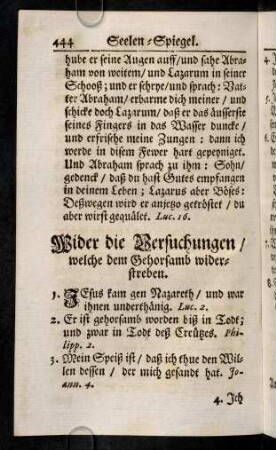 444 Seelen-Spiegel.
hube er seine Augen auff / und sahe Abra-
ham von weitem / und Lazarum in seiner
Schooß; und er schrye / und sprach: Vat-
ter Abraham / erbarme dich meiner / und
schicke doch Lazarum / daß er das äusserste
seines Fingers in das Wasser duncke /
und erfrische meine Zungen: dann ich
werde in disem Fewer hart gepeyniget.
Und Abraham sprach zu ihm: Sohn /
gedenck / daß du hast Gutes empfangen
in deinem Leben; Lazarus aber Böses:
Deßwegen wird er anjetzo getröstet / du
aber wirst gequälet. Luc. 16.
Wider die Versuchungen /
welche dem Gehorsamb wider-
streben.
1. JEsus kam gen Nazareth / und war
ihnen underthänig. Luc. 2.
2. Er ist gehorsamb worden biß in Todt;
und zwar in Todt deß Creützes. Phi-
lipp. 2.
3. Mein Speiß ist / daß ich thue den Wil-
len dessen / der mich gesandt hat. Jo-
ann. 4.
4. Ich